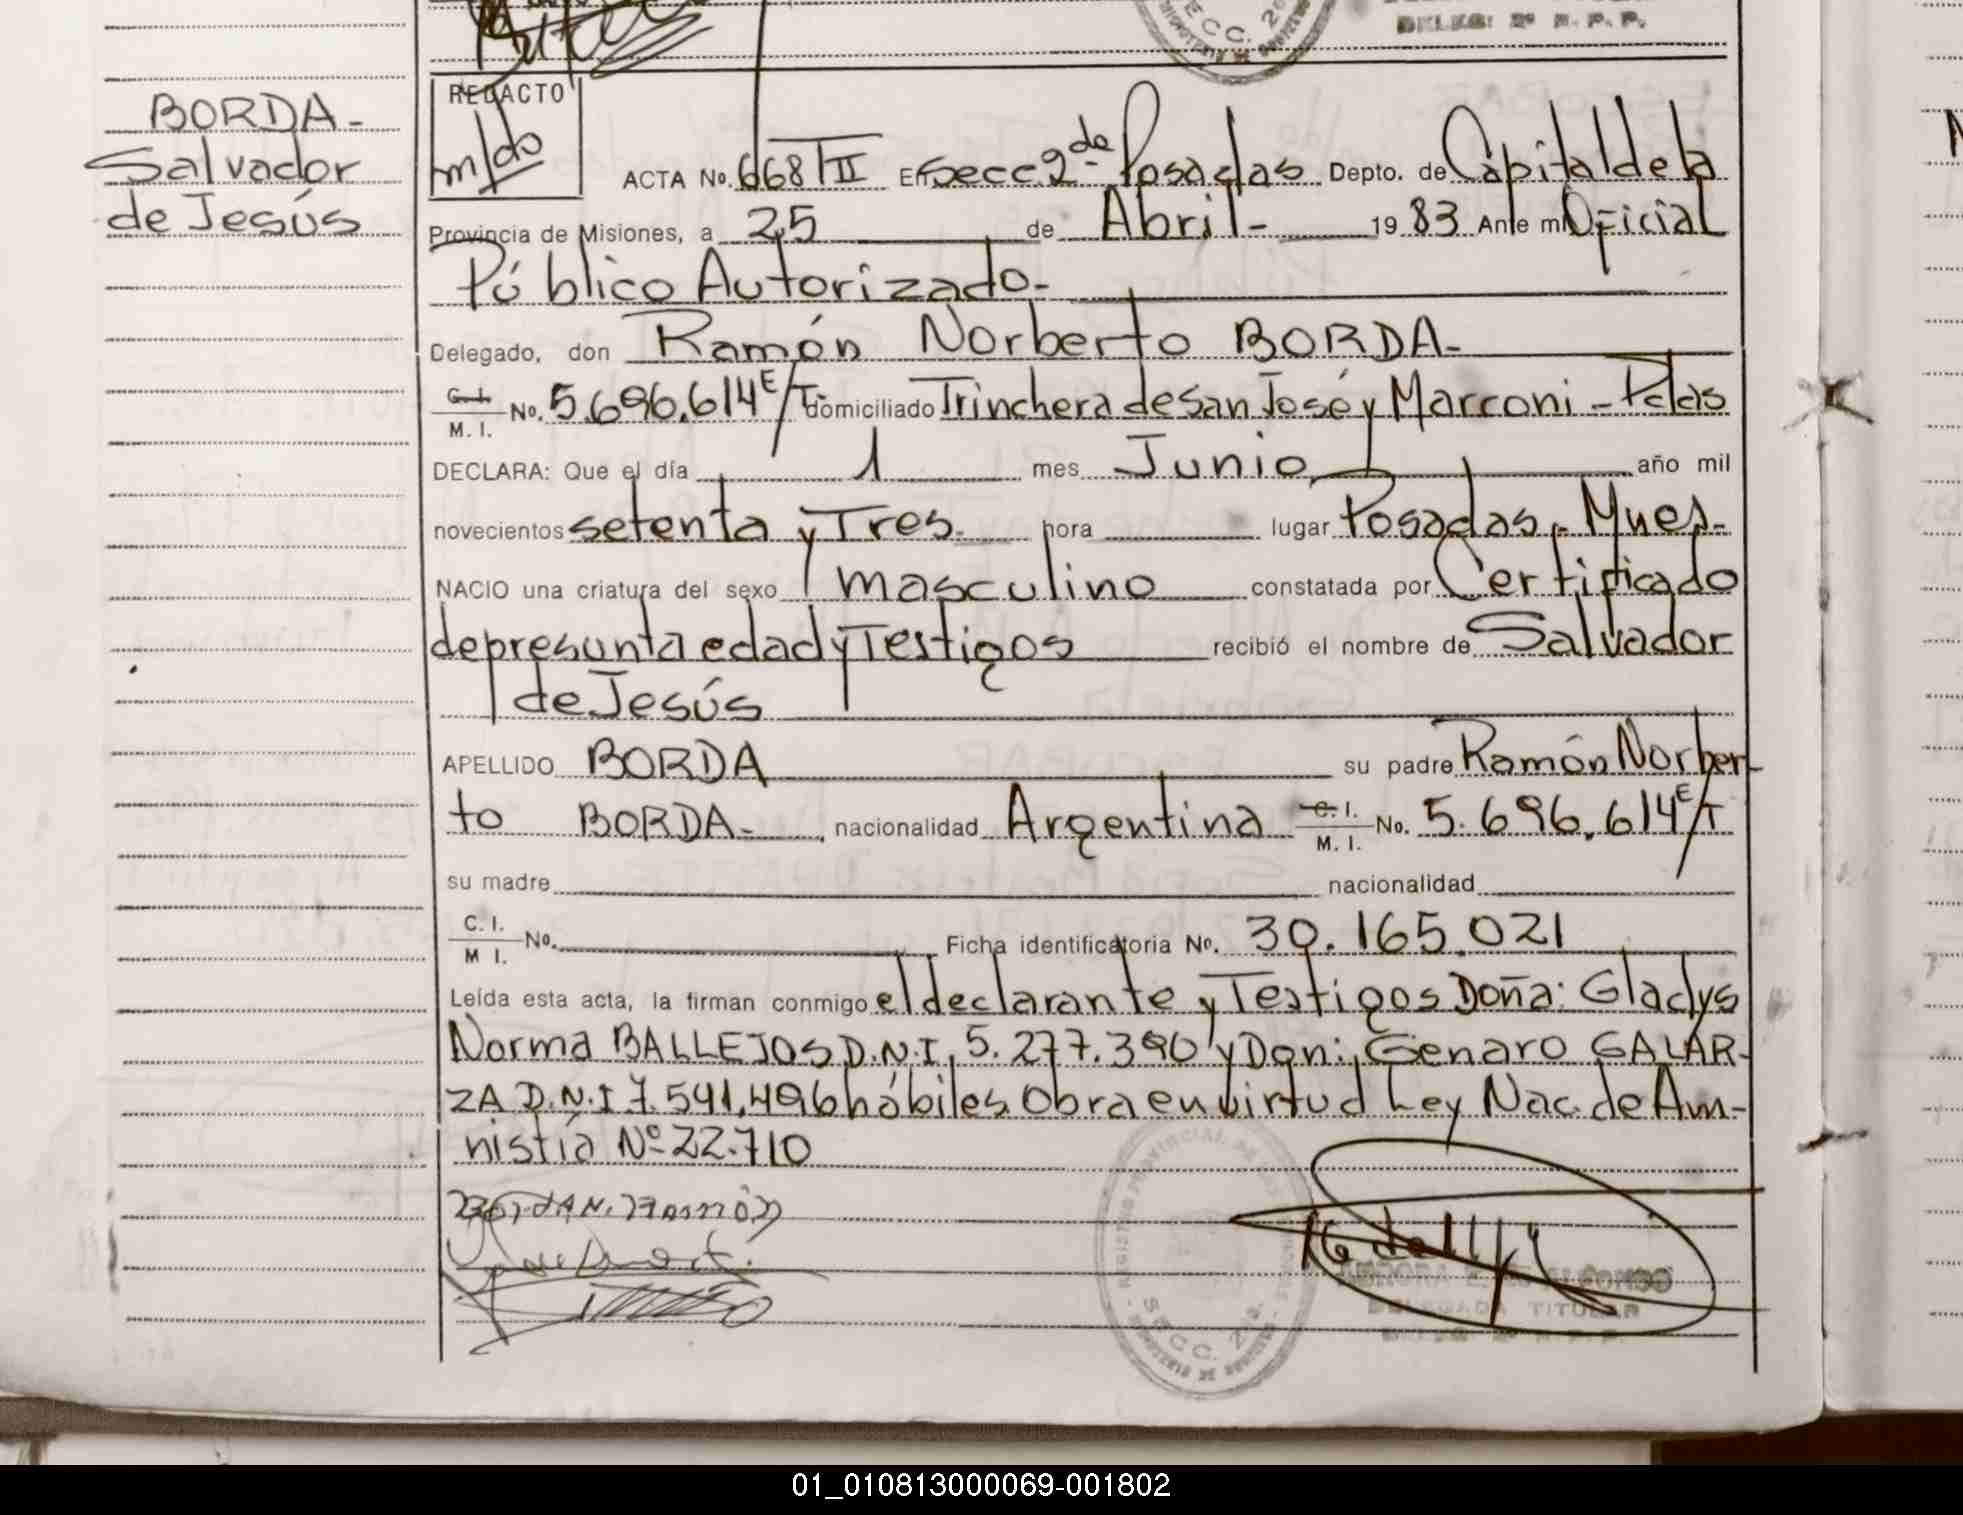 SECC. 2
DELEG: 2ª R. P. P.
BORDA-
Salvador
de Jesús
REDACTO
m/do
ACTA No. 668/II En Secc. 2da Posadas Depto. de Capital de la
Provincia de Misiones, a 25 de Abril- 1983 Ante mí Oficial
Público Autorizado-
Delegado, don Ramón Norberto BORDA-
C. I. M. I. No. 5.696.614 E/T domiciliado Trinchera de San José y Marconi - Pdas
DECLARA: Que el día 1 mes Junio año mil
novecientos setenta y Tres- hora lugar Posadas - Mnes-
NACIO una criatura del sexo masculino constatada por Certificado
de presunta edad y Testigos recibió el nombre de Salvador
de Jesús
APELLIDO BORDA su padre Ramón Norber-
to BORDA- , nacionalidad Argentina C. I. M. I. No. 5.696.614 E/T
su madre nacionalidad
C. I. M I. No. Ficha identificatoria No. 30.165.021
Leída esta acta, la firman conmigo el declarante y Testigos Doña: Gladys
Norma BALLEJOS D.N.I. 5.277.390 y Don: Genaro GALAR-
ZA D.N.I 7.541.496 hábiles Obra en virtud Ley Nac. de Am-
nistía Nº 22.710
REGISTRO PROVINCIAL DE LAS PERSONAS
SECC. 2da.
DELEGADA TITULAR
01_010813000069-001802